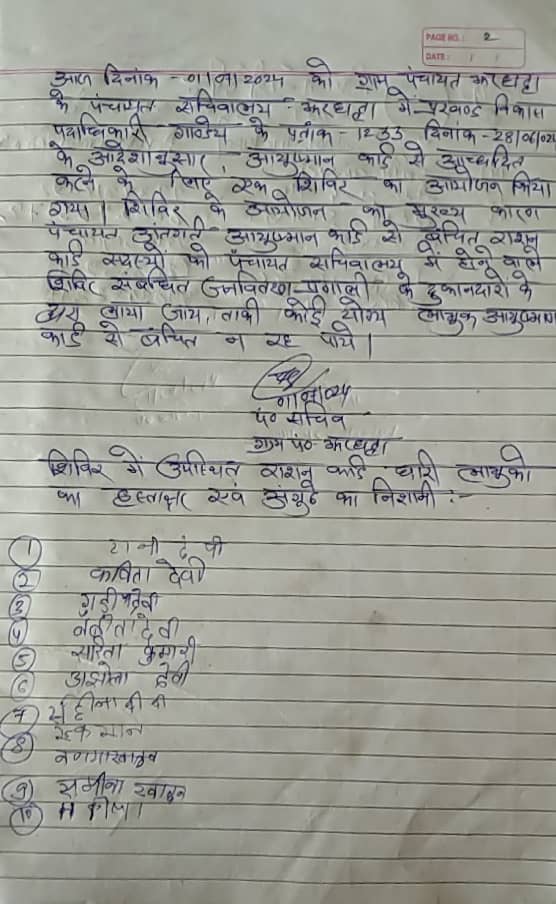 PAGE NO.: 2
DATE: / /
आज दिनांक - 01/07/2024 को ग्राम पंचायत करहाद्वा
के पंचायत सचिवालय - करहाद्वा में प्रखण्ड विकास
पदाधिकारी गाण्डेय के पत्रांक - 1233 दिनांक - 28/06/024
के आदेशानुसार आयुष्मान कार्ड से आच्छादित
करने के लिए एक शिविर का आयोजन किया
गया। शिविर के आयोजन का मुख्य कारण
पंचायत अंतर्गत आयुष्मान कार्ड से वंचित राशन
कार्ड सदस्यों को पंचायत सचिवालय में होने वाले
शिविर संबंधित जनवितरण प्रणाली के दुकानदारों के
द्वारा लाया जाय, ताकी कोई योग्य लाभुक आयुष्मान
कार्ड से वंचित न रह पाये।
पं० सचिव
ग्राम पं० करहाद्वा
शिविर में उपस्थित राशन कार्ड धारी लाभुको
का हस्ताक्षर एवं अंगुठे का निशानी :-
1
2 कविता देवी
3 देवी
4 देवी
5 सरिता कुमारी
6 देवी
7
8
9 समीना खातुन
10